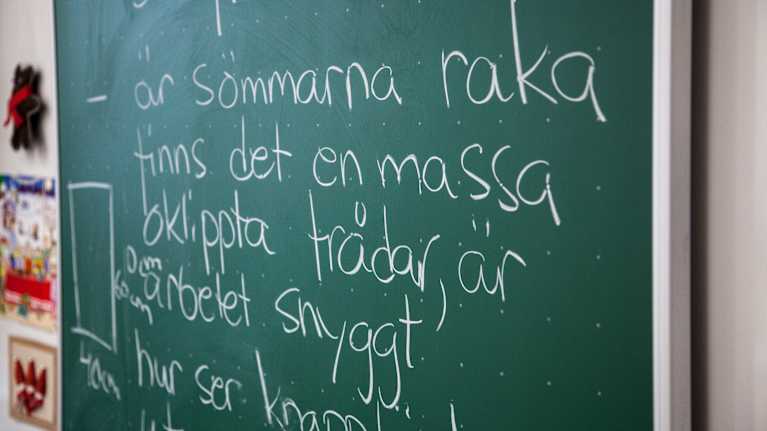 - är sömmarna raka
finns det en massa
oklippta trådar, är
arbetet snyggt,
hur ser
40cm